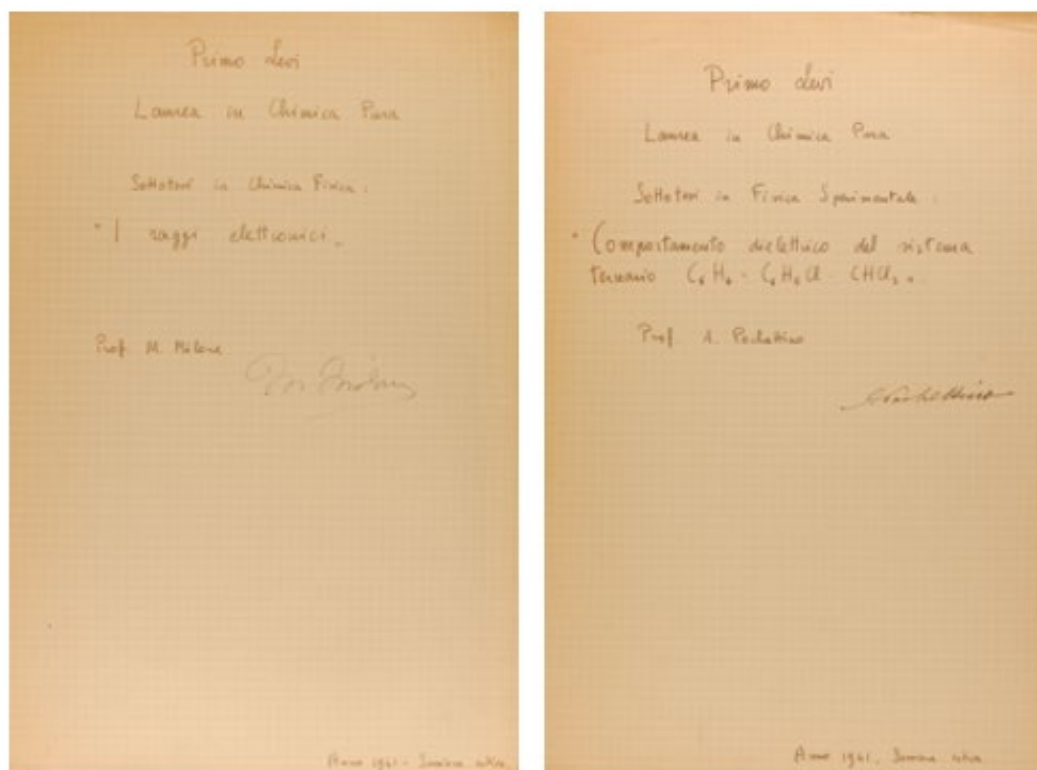 Primo Levi
Laurea in Chimica Pura
Sottotesi in Chimica Fisica:
"I raggi elettronici".
Prof. M. Milone
Anno 1941 - Sessione estiva.
Primo Levi
Laurea in Chimica Pura
Sottotesi in Fisica Sperimentale:
"Comportamento dielettrico del sistema
ternario C₆H₆ - C₆H₅Cl - CHCl₃".
Prof. A. Pochettino
A. Pochettino
Anno 1941, Sessione estiva